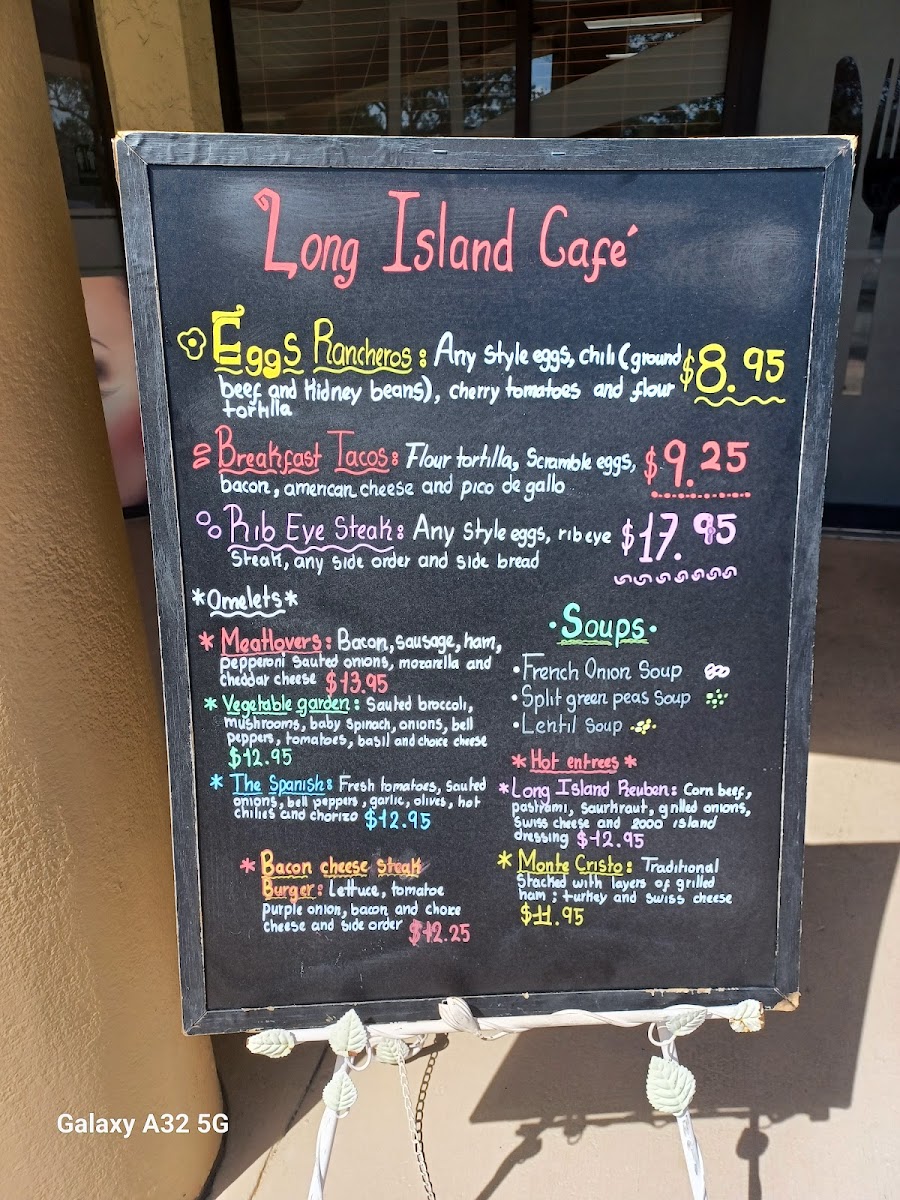 Long Island Café
Eggs Rancheros: Any style eggs, chili (ground $8.95
beef and Kidney beans), cherry tomatoes and flour
tortilla
Breakfast Tacos: Flour tortilla, Scramble eggs, $9.25
bacon, american cheese and pico de gallo
Rib Eye Steak: Any style eggs, rib eye $17.95
Steak, any side order and side bread
*Omelets*
* Meatlovers: Bacon, sausage, ham,
pepperoni sauted onions, mozarella and
cheddar cheese $13.95
* Vegetable garden: Sauted broccoli,
mushrooms, baby spinach, onions, bell
peppers, tomatoes, basil and choice cheese
$12.95
* The Spanish: Fresh tomatoes, sauted
onions, bell peppers, garlic, olives, hot
chilies and chorizo $12.95
* Bacon cheese steak
Burger: Lettuce, tomatoe
purple onion, bacon and choice
cheese and side order $12.25
• Soups •
• French Onion Soup
• Split green peas Soup
• Lentil Soup
* Hot entrees *
* Long Island Reuben: Corn beef,
pastrami, saurkraut, grilled onions,
swiss cheese and 2000 island
dressing $12.95
* Monte Cristo: Traditional
Stacked with layers of grilled
ham; turkey and swiss cheese
$11.95
Galaxy A32 5G